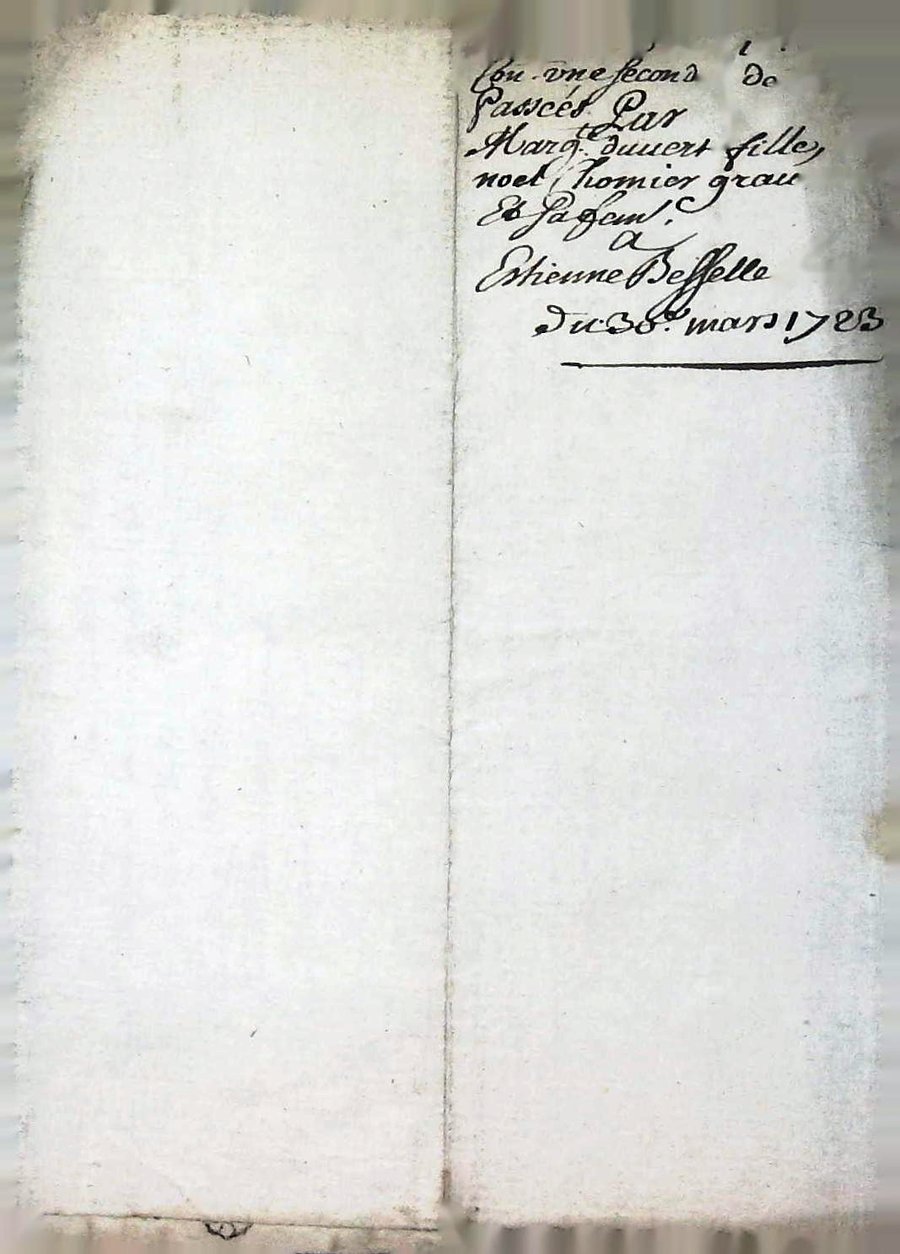 une second de
Passéés Par
Marg.te duuert fille,
noel Chomier grau
Et Sa fem.
a
Estienne Besselle
du 30.e mars 1723